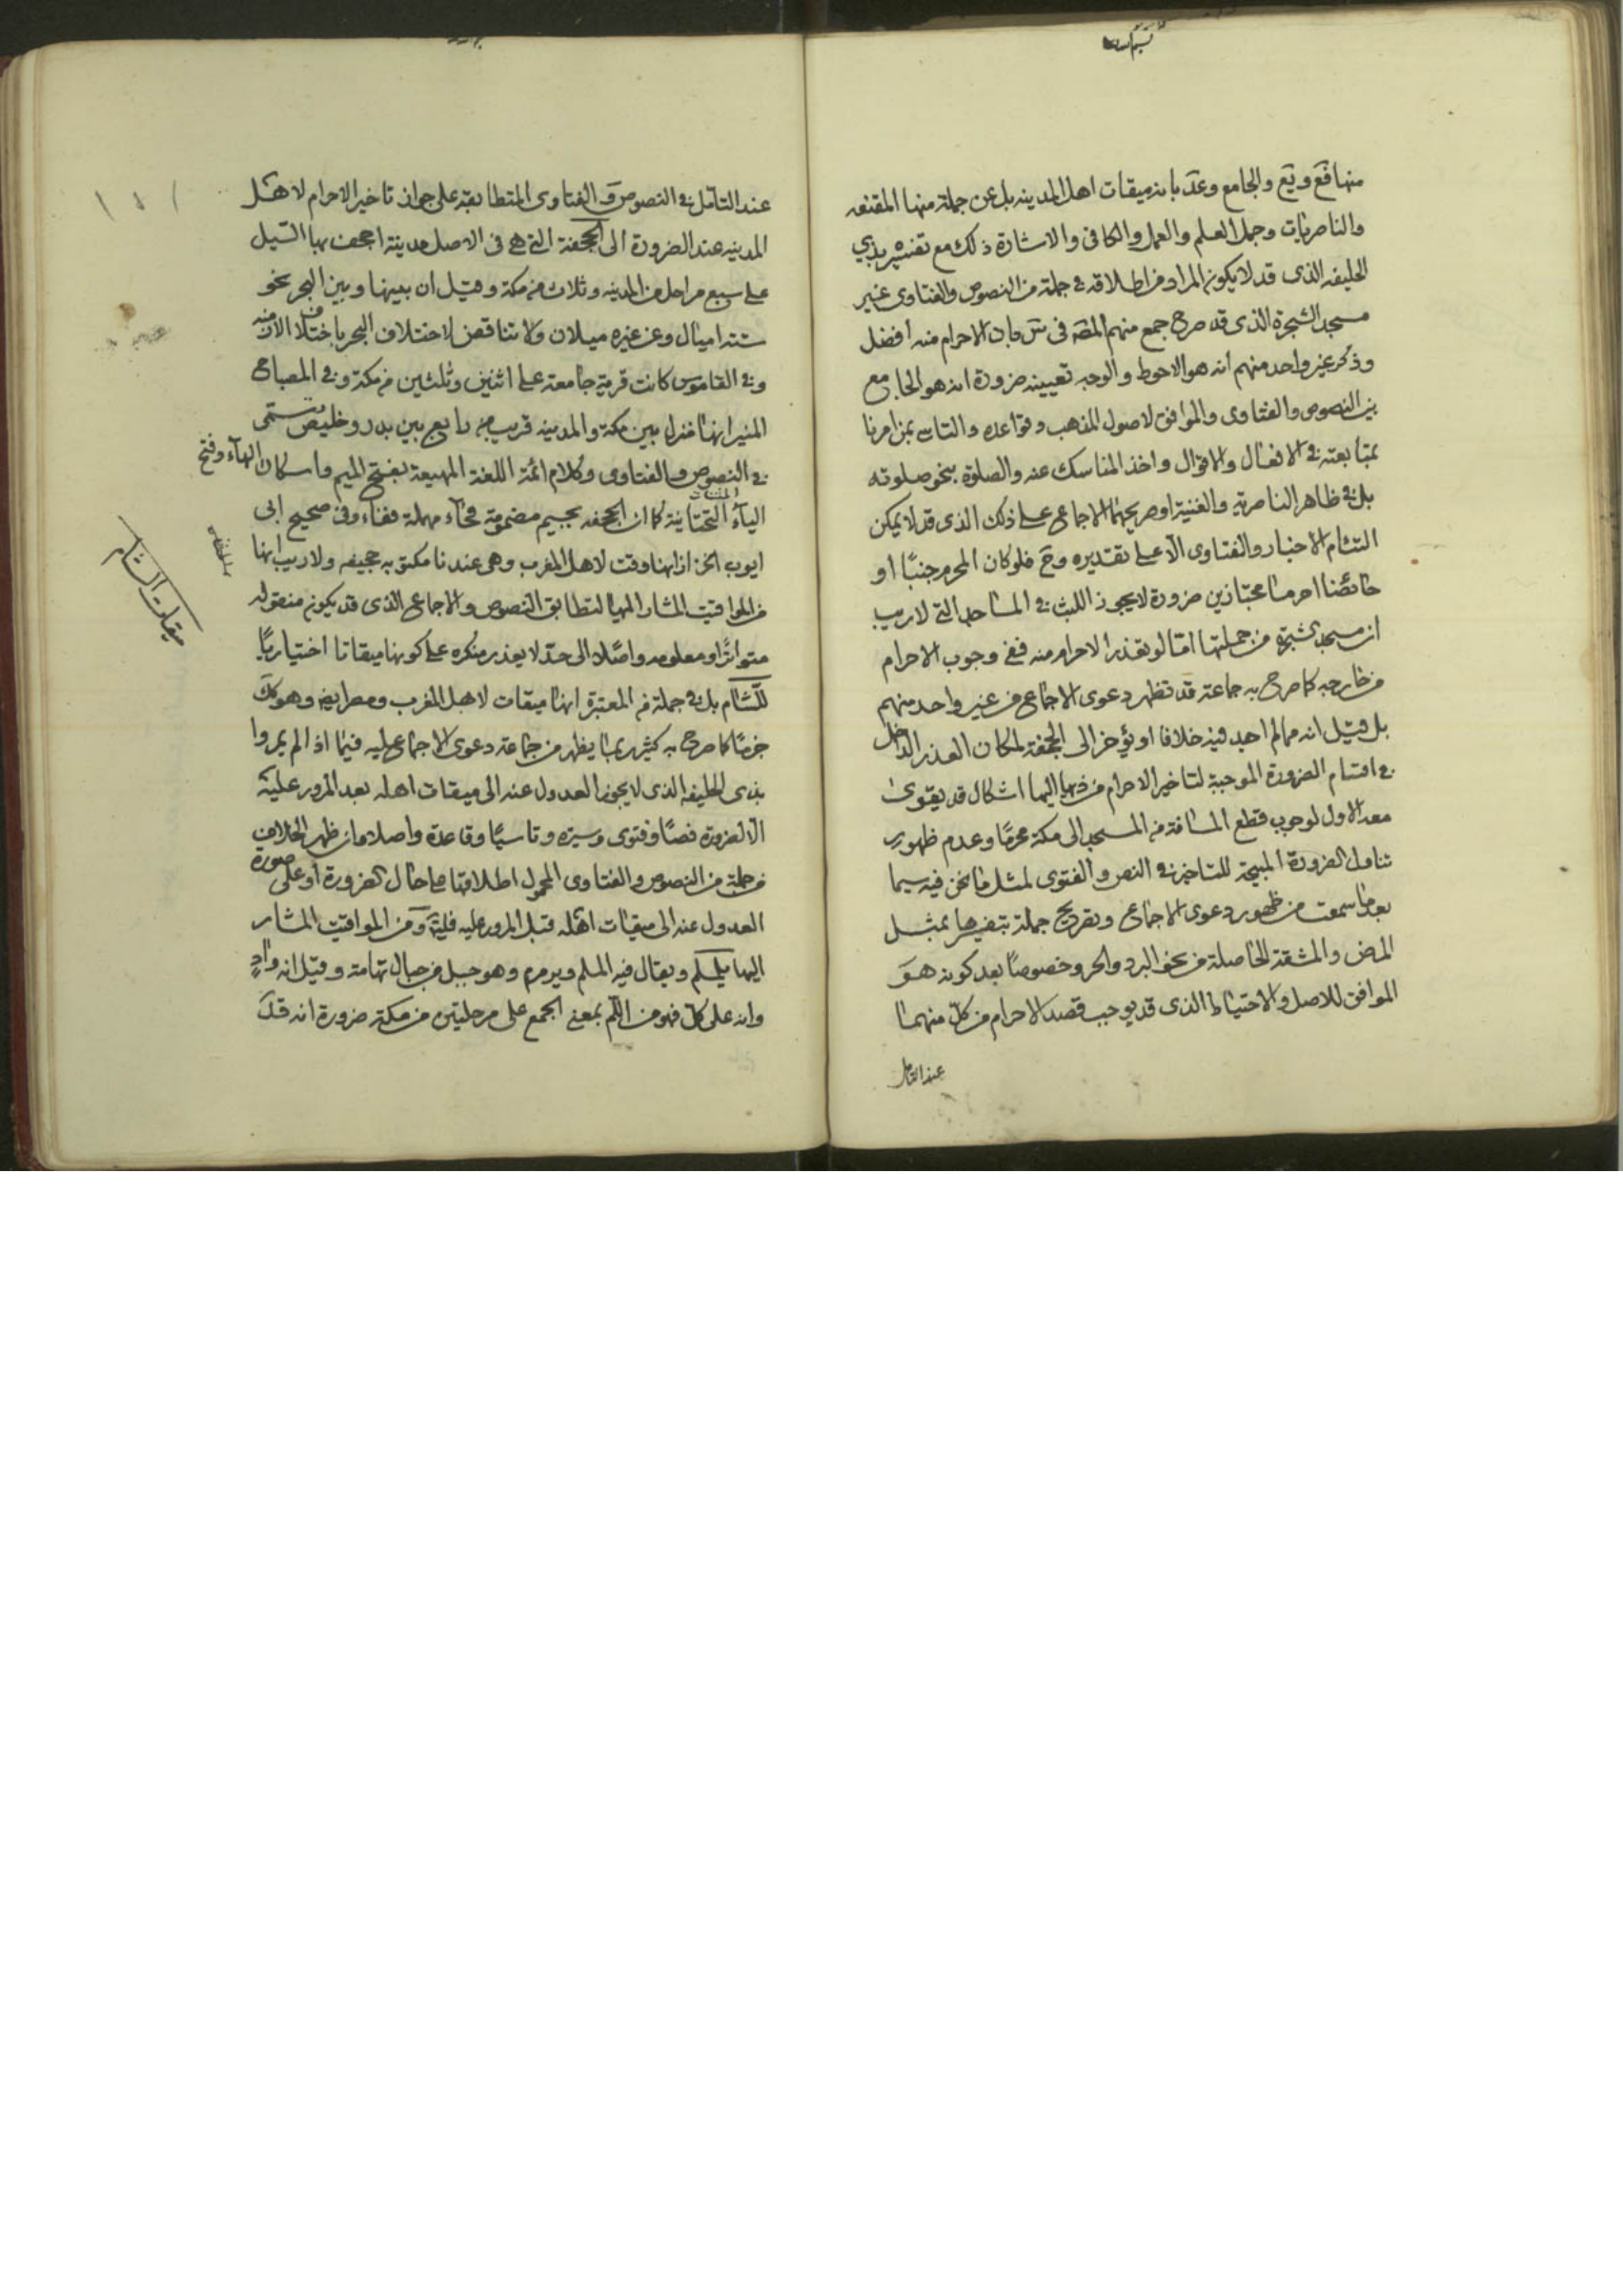 منها فع ويع والجامع وعد بانه ميقات اهل المدينه بل عن جملة منها المقنعه
والناصريات وجمل العلم والعمل والكافى والاشارة ذلك مع تفسيره بذي
الحليفه الذى قد لا يكون المراد من اطلاقه فى جملة من النصوص والفتاوى غير
مسجد الشجرة الذى قد صرح جمع منهم المصه فى بان الاحرام منه أفضل
وذكر غير واحد منهم انه هو الاحوط والوجه تعيينه ضرورة انه هو الجامع
بين النصوص والفتاوى والموافق لاصول المذهب وقواعده والتاسى بمن امرنا
بمتابعته فى الافعال والاقوال واخذ المناسك عنه والصلوة بنحو صلوته
بل فى ظاهر الناصرية والغنية او صريحهما الاجماع على ذلك الذى قد لا يمكن
التئام الاخبار والفتاوى الا على تقديره وح فلو كان المحرم جنبًا او
حائضا احرما مجتازين ضرورة لا يجوز اللبث فى المساجد التى لا ريب
ان مسجد الشجرة من جملتها امّا لو تعذر الاحرام منه ففى وجوب الاحرام
من خارجه كما صرح به جماعة قد تظهر دعوى الاجماع من غير واحد منهم
بل قيل انه مما لم اجد فيه خلافا او يؤخر الى الجحفة لمكان العذر الداخل
فى اقسام الضرورة الموجبة لتاخير الاحرام من اليها اشكال قد يقوى
معه الاول لوجوب قطع المسافة من المسجد الى مكة محرمًا وعدم ظهور
تناول الضرورة المبيحة للتاخير فى النص والفتوى لمثل ما نحن فيه سيما
بعد ما سمعت من ظهور دعوى الاجماع وتصريح جملة بتفسيرها بمثل
المرض والمشقة الحاصلة من نحو البرد والحر وخصوصًا بعد كونه هو
الموافق للاصل والاحتياط الذى قد يوجب قصد الاحرام من كل منهما
عند التامل
عند التامل فى النصوص والفتاوى المتطابقة على جواز تاخير الاحرام لاهل
المدينه عند الضرورة الى الجحفة التى هى فى الاصل مدينة اجحف بها السّيل
على سبع مراحل من المدينه وثلاث من مكة وقيل ان بينها وبين البحر نحو
ستة اميال وعن غيره ميلان ولا تناقض لاختلاف البحر باختلاف الازمنه
وفى القاموس كانت قرية جامعة على اثنين وثلثين من مكة وفى المصباح
المنير انها منزل بين مكة والمدينه قريب من رابغ بين بدر وخليص تسمى
فى النصوص والفتاوى وكلام ائمة اللغة المهيعة بفتح الميم واسكان الهاء وفتح
الياء المثناة التحتانية كما ان الجحفه بجيم مضمومة فحاء مهملة ففاء وفى صحيح ابى
ايوب الخزاز انها وقت لاهل المغرب وهى عندنا مكتوبه مهيعه ولا ريب انها
من المواقيت المشار اليها لتطابق النصوص والاجماع الذى قد يكون منقوله
متواترًا ومعلومه واصلًا الى حدّ لا يعذر منكره على كونها ميقاتا اختياريًا
للشام بل فى جملة من المعتبرة انها ميقات لاهل المغرب ومصر ايضا وهو كك
جزمًا كما صرح به كثير ربما يظهر من جماعة دعوى الاجماع عليه فيما اذا لم يمروا
بذى الحليفه الذى لا يجوز العدول عنه الى ميقات اهله بعد المرور عليه
الا لضرورة نصًا وفتوى وسيرة وتاسيًا وقاعدة واصلا وان ظهر الخلاف
من جملة من النصوص والفتاوى المحمول اطلاقها على حال الضرورة أو على صورة
العدول عنه الى ميقات اهله قبل المرور عليه فليتأمل ومن المواقيت المشار
اليها يلملم ويقال فيه الملم ويرمرم وهو جبل من جبال تهامة وقيل انه وادٍ
وانه على كل فهو من اللّم بمعنى الجمع على مرحلتين من مكة ضرورة انه قد
ميقات الشام